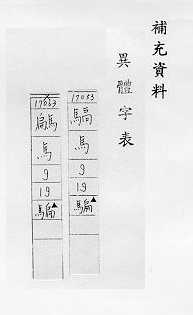 補充資料
異體字表
17033
馬
9
19
騙▲
17033
馬
9
19
騙▲